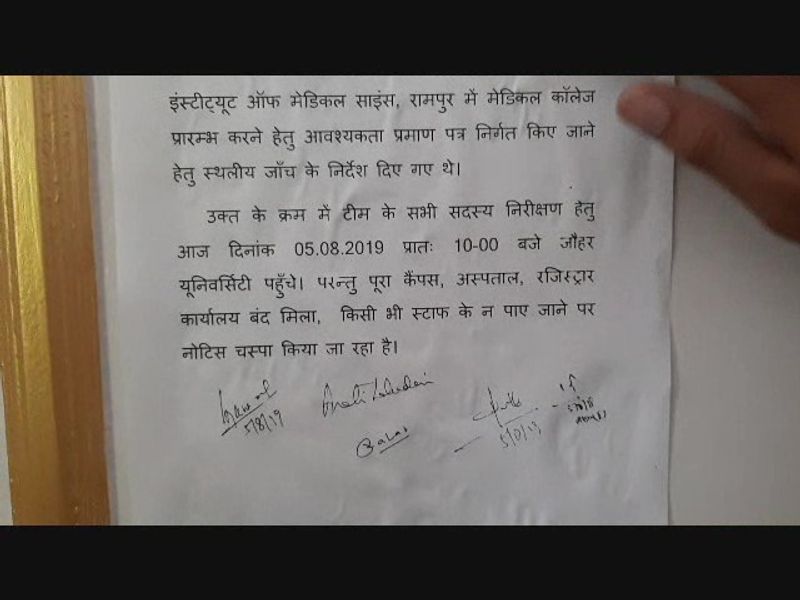 इंस्टीट्यूट ऑफ मेडिकल साइंस, रामपुर में मेडिकल कॉलेज
प्रारम्भ करने हेतु आवश्यकता प्रमाण पत्र निर्गत किए जाने
हेतु स्थलीय जाँच के निर्देश दिए गए थे।
उक्त के क्रम में टीम के सभी सदस्य निरीक्षण हेतु
आज दिनांक 05.08.2019 प्रातः 10-00 बजे जौहर
यूनिवर्सिटी पहुँचे। परन्तु पूरा कैंपस, अस्पताल, रजिस्ट्रार
कार्यालय बंद मिला, किसी भी स्टाफ के न पाए जाने पर
नोटिस चस्पा किया जा रहा है।
5/8/19